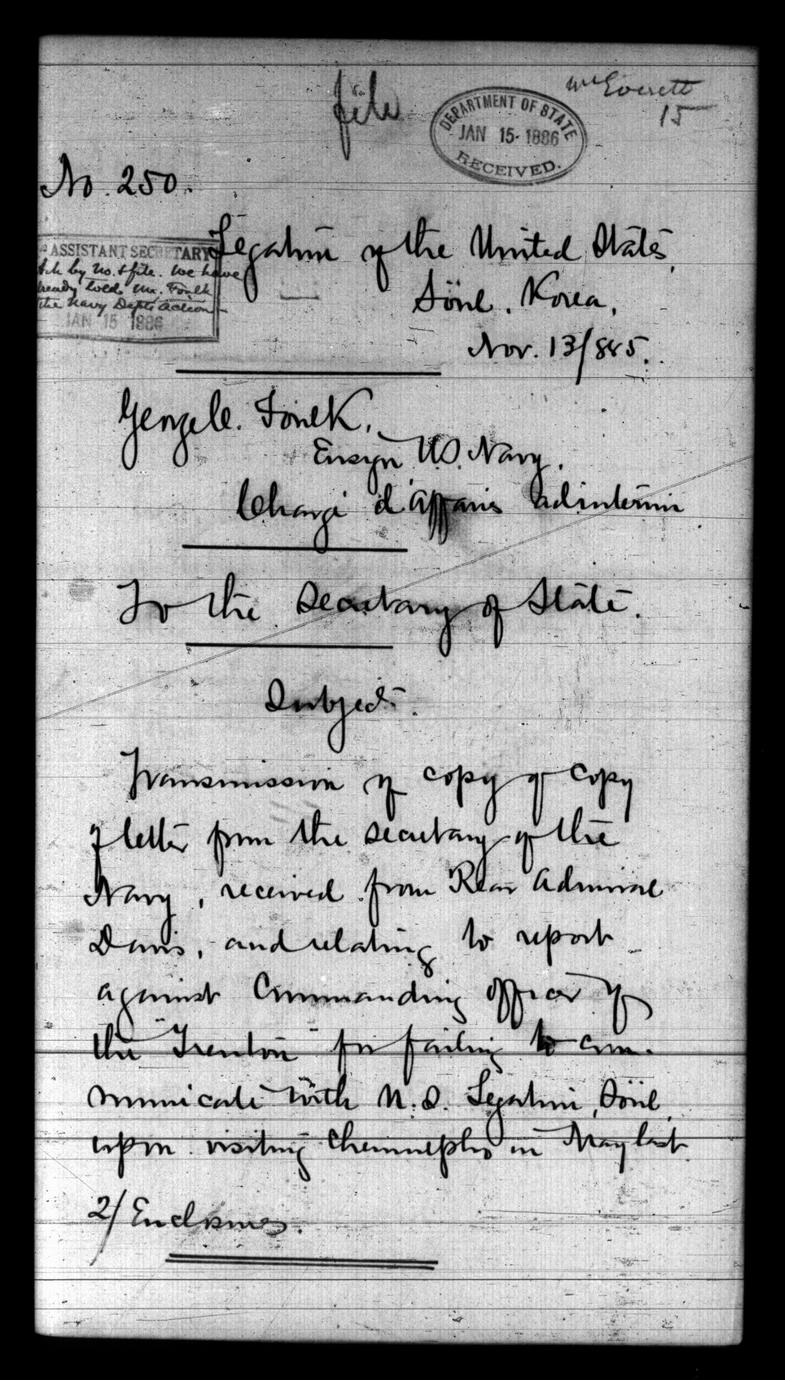 file
Mr Everett
15
DEPARTMENT OF STATE
JAN 15 1886
RECEIVED.
No. 250.
ASSISTANT SECRETARY
Ack by No. & file. We have
already told Mr. Foulk
the Navy Dept's action
JAN 15 1886
Legation of the United States,
Söul, Korea,
Nov. 13/885.
George C. Foulk,
Ensign U.S. Navy.
Chargé d'Affaires ad interim
To the Secretary of State.
Subject:
Transmission of copy of copy
of letter from the Secretary of the
Navy, received from Rear Admiral
Davis, and relating to report
against Commanding officer of
the "Trenton" for failing to com-
municate with U.S. Legation, Söul,
upon visiting Chemulpho in May last.
2/ Enclosures.